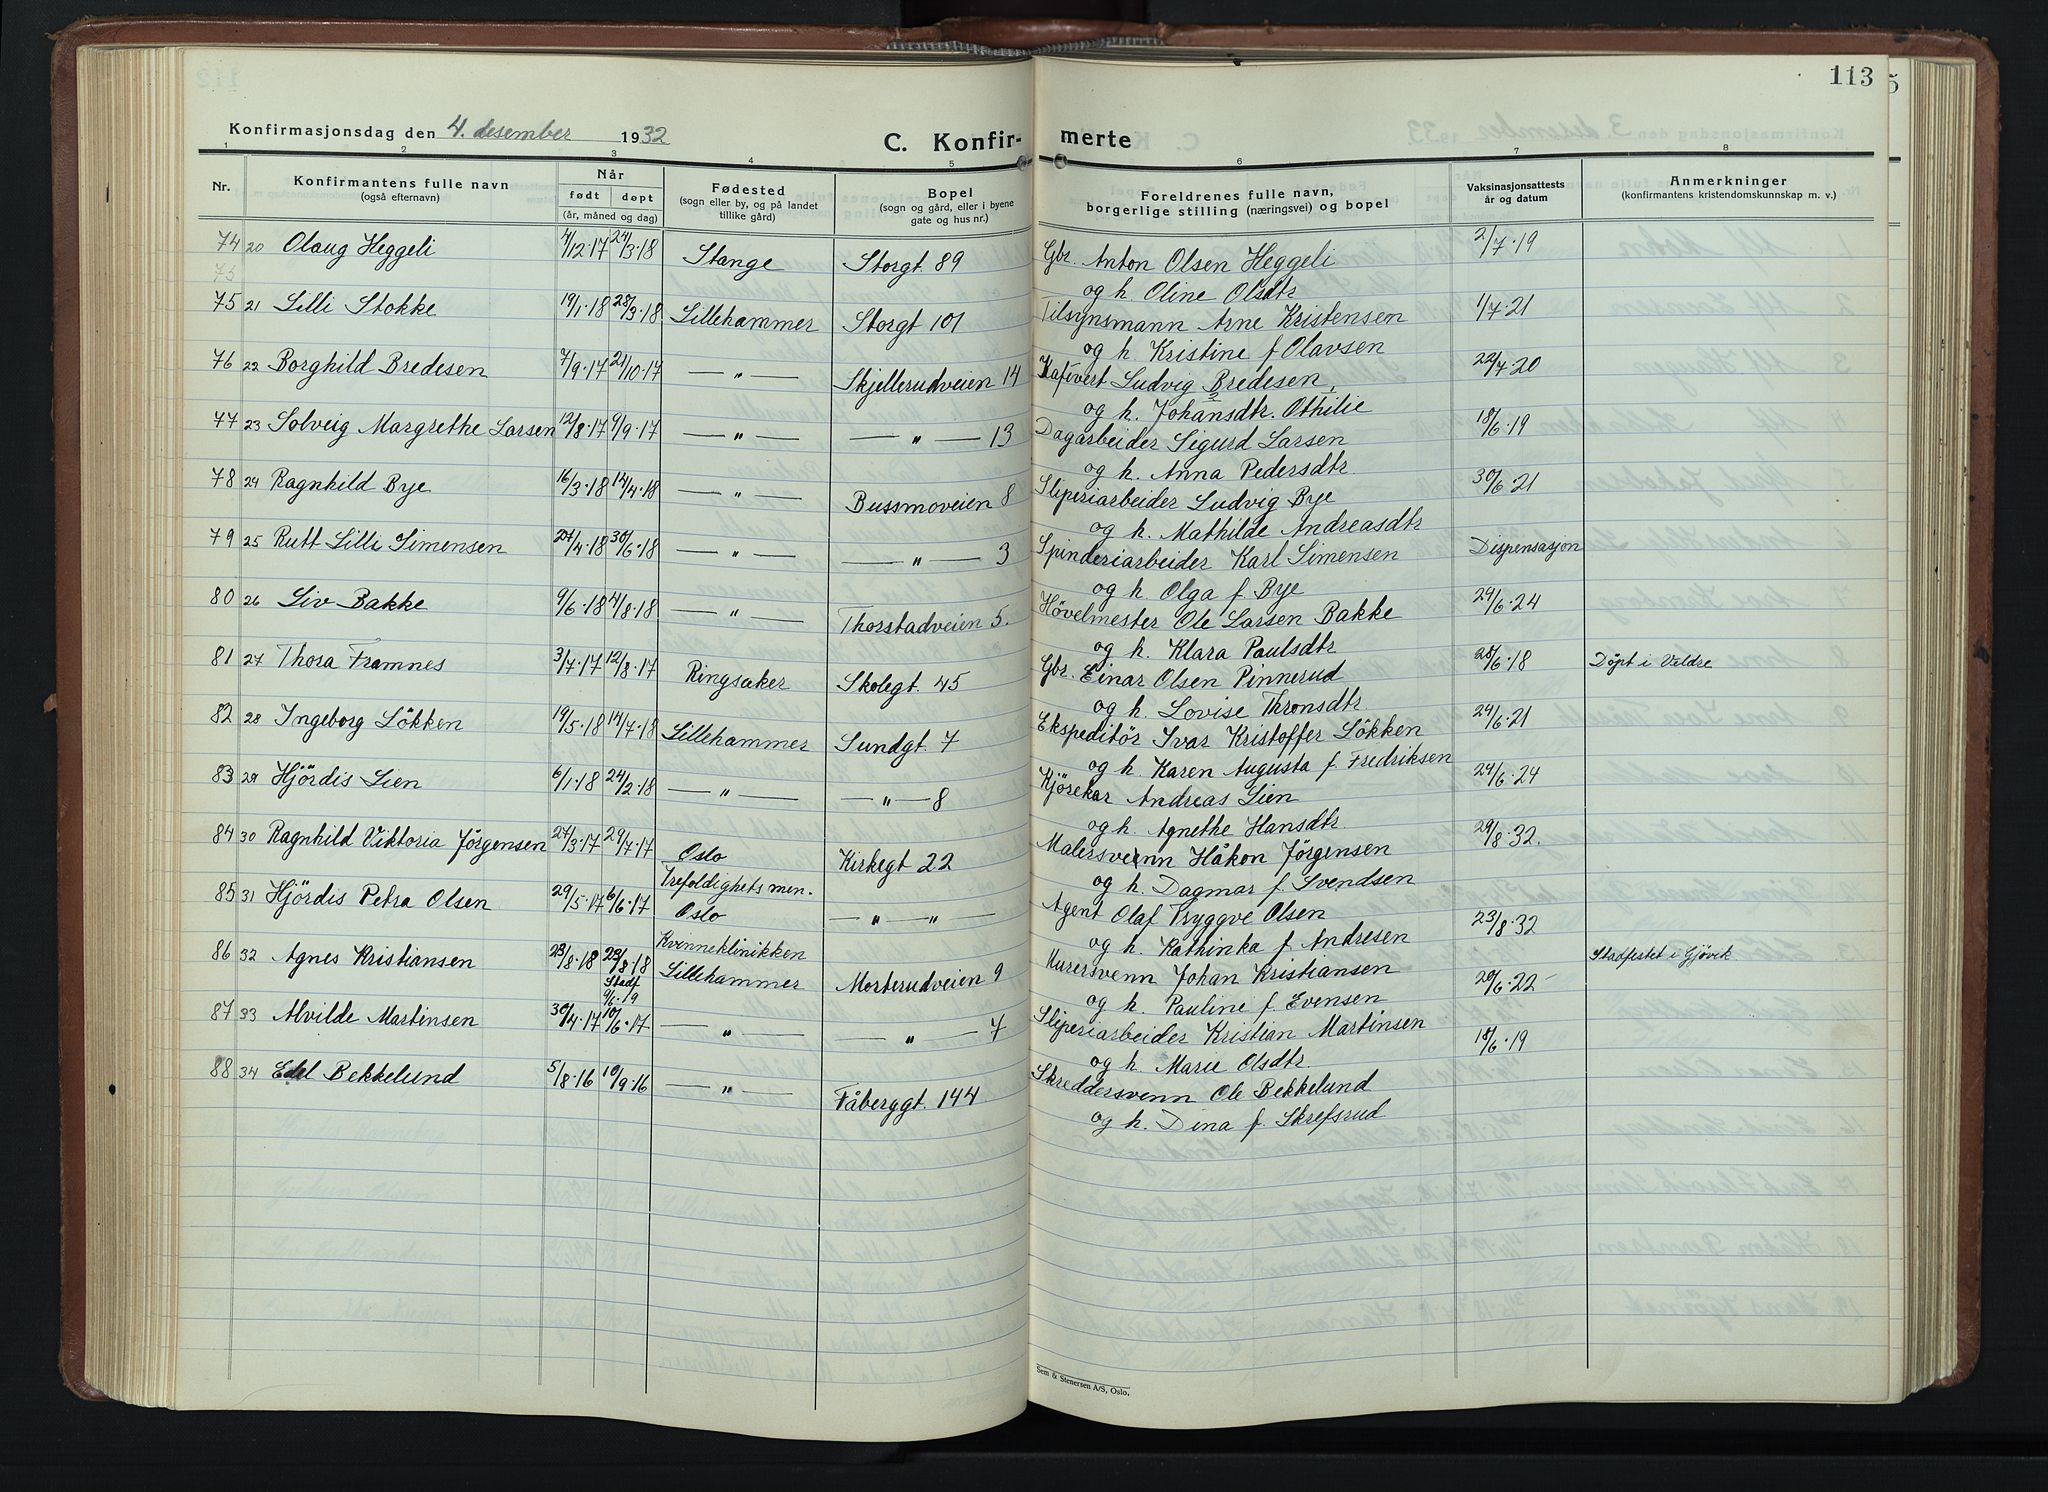 113
Konfirmasjonsdag den 4. desember 1932
C. Konfir-
merte
1 2 3 4 5 6 7 8
Nr. Konfirmantens fulle navn (også efternavn) Når født døpt (år, måned og dag) Fødested (sogn eller by, og på landet tillike gård) Bopel (sogn og gård, eller i byene gate og hus nr.) Foreldrenes fulle navn, borgerlige stilling (næringsvei) og bopel Vaksinasjonsattests år og datum Anmerkninger (konfirmantens kristendomskunnskap m. v.)
74 20 Olaug Heggeli 4/12·17 24/3·18 Stange Storgt. 89 Gbr. Anton Olsen Heggeli 2/7·19
75
og h. Oline Olsdtr
75 21 Lilli Stokke 19/1·18 28/3·18 Lillehammer Storgt 101 Tilsynsmann Arne Kristensen 1/7·21
og h. Kristine f Olavsen
76 22 Borghild Bredesen 7/9·17 21/10·17 — „ — Skjellerudveien 14 Kafévert Ludvig Bredesen, 22/7·20
og h. Johansdtr. Othilie
77 23 Solveig Margrethe Larsen 12/8·17 9/9·17 — „ — — „ — 13 Dagarbeider Sigurd Larsen 18/6·19
og h. Anna Pedersdtr
78 24 Ragnhild Bye 16/3·18 14/4·18 — „ — Bussmoveien 8 Sliperiarbeider Ludvig Bye 30/6·21
og h. Mathilde Andreasdtr
79 25 Rutt Lilli Simensen 27/4·18 30/6·18 — „ — — „ — 3 Spinderiarbeider Karl Simensen Dispensasjon
og h. Olga f Bye
80 26 Liv Bakke 9/6·18 4/8·18 — „ — Thorstadveien 5. Hövelmester Ole Larsen Bakke 24/6·24
og h. Klara Paulsdtr
81 27 Thora Framnes 3/7·17 12/8·17 Ringsaker Skolegt. 45 Gbr. Einar Olsen Pinnerud 28/6·18 Döpt i Veldre
og h. Lovise Thronsdtr
82 28 Ingeborg Lökken 19/5·18 14/7·18 Lillehammer Sundgt. 7 Ekspeditör Ivar Kristoffer Lökken 24/6·21
og h. Karen Augusta f. Fredriksen
83 29 Hjördis Lien 6/1·18 24/2·18 — „ — — „ — 8 Kjörekar Andreas Lien 24/6·24
og h. Agnethe Hansdtr.
84 30 Ragnhild Viktoria Jörgensen 27/3·17 29/7·17 Oslo Kirkegt 22 Malersvenn Håkon Jörgensen 29/8·32.
Trefoldighets men. og h. Dagmar f. Svendsen
85 31 Hjördis Petra Olsen 29/5·17 6/6·17 Oslo — „ „ — Agent Olaf Tryggve Olsen 23/8·32
Kvinneklinikken og h. Kathinka f. Andresen
86 32 Agnes Kristiansen 23/8·18 23/8·18 Lillehammer Morterudveien 9 Murersvenn Johan Kristiansen 29/6·22- Stadfestet i Gjövik
Stadf 9/6·19 og h. Pauline f. Evensen
87 33 Alvilde Martinsen 30/4·17 10/6·17 — „ — — „ — 7 Sliperiarbeider Kristian Martinsen 18/6·19
og h. Marie Olsdtr
88 34 Edel Bekkelund 5/8·16 10/9·16 — „ — Fåberggt. 144 Skreddersvenn Ole Bekkelund
og h. Dina f. Skrefsrud
Sem & Stenersen A/S, Oslo.